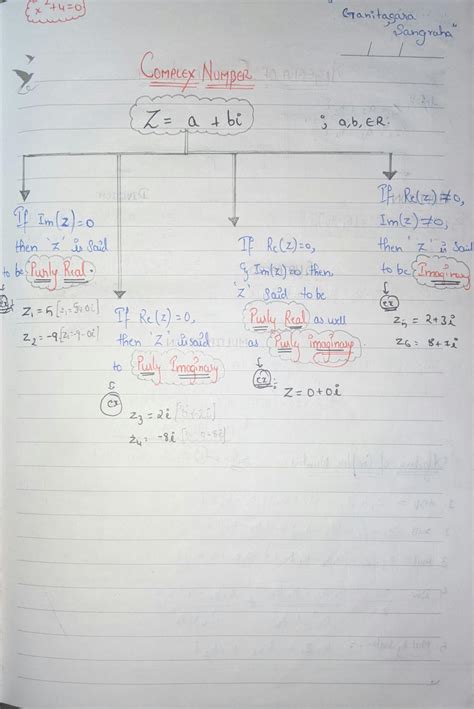 x² + 4 = 0
"Ganitasara Sangraha"
COMPLEX NUMBER
Z = a + bi ; a, b, ∈ R.
If Im(z) = 0
then 'z' is said
to be Purly Real.
ex
Z₁ = 5
Z₂ = -9
If Re(z) = 0,
then 'z' is said
to Purly Imaginary
ex
Z₃ = 2i
Z₄ = -8i
If Re(z) = 0,
& Im(z) = 0 then,
'z' said to be
Purly Real as well
as Purly imaginary
ex ;
Z = 0 + 0i
If Re(z) ≠ 0,
Im(z) ≠ 0,
then 'z' is said
to be Imaginary
ex
Z₅ = 2 + 3i